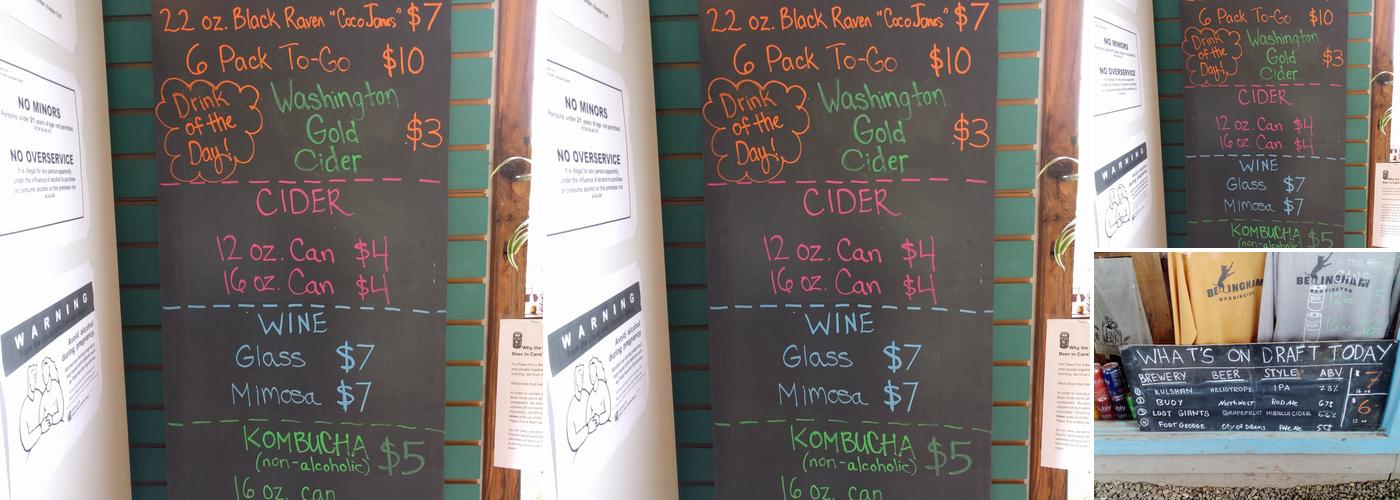 22 oz. Black Raven "Coco Jones" $7
6 Pack To-Go $10
Drink of the Day!
Washington Gold Cider $3
CIDER
12 oz. Can $4
16 oz. Can $4
WINE
Glass $7
Mimosa $7
KOMBUCHA
(non-alcoholic) $5
16 oz. can
NO MINORS
Persons under 21 years of age not permitted.
NO OVERSERVICE
It is illegal for any person apparently
under the influence of alcohol to purchase
or consume alcohol on this premises.
WARNING
Avoid alcohol
during pregnancy.
Why the
Beer in Cans
22 oz. Black Raven "Coco Jones" $7
6 Pack To-Go $10
Drink of the Day!
Washington Gold Cider $3
CIDER
12 oz. Can $4
16 oz. Can $4
WINE
Glass $7
Mimosa $7
KOMBUCHA
(non-alcoholic) $5
16 oz. can
NO MINORS
Persons under 21 years of age not permitted.
NO OVERSERVICE
It is illegal for any person apparently
under the influence of alcohol to purchase
or consume alcohol on this premises.
WARNING
Avoid alcohol
during pregnancy.
Why the
Beer in Cans
6 Pack To-Go $10
Drink of the Day!
Washington Gold Cider $3
CIDER
12 oz. Can $4
16 oz. Can $4
WINE
Glass $7
Mimosa $7
KOMBUCHA
(non-alcoholic) $5
NO MINORS
NO OVERSERVICE
WARNING
BELLINGHAM
WASHINGTON
BELLINGHAM
CANS
12 oz
16 oz 6
WHAT'S ON DRAFT TODAY
BREWERY BEER STYLE ABV
KULSHAN HELIOTROPE IPA 7.3% $7
BUOY Northwest Red Ale 16 oz
LOST GIANTS GRAPEFRUIT HIBISCUS CIDER $6
FORT GEORGE City of Dreams Pale Ale 12 oz